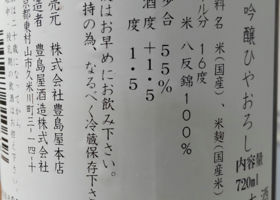 吟醸ひやおろし
内容量
720ml
料名 米(国産)、米麹(国産米)
ール分 16度
米 八反錦100%
歩合 55%
酒度 +1.5
度 1.5
はお早めにお飲み下さい。
持の為、なるべく冷蔵保存下さ
売元 株式会社豊島屋本店
造者 豊島屋酒造株式会社
京都東村山市久米川町三-一四-十